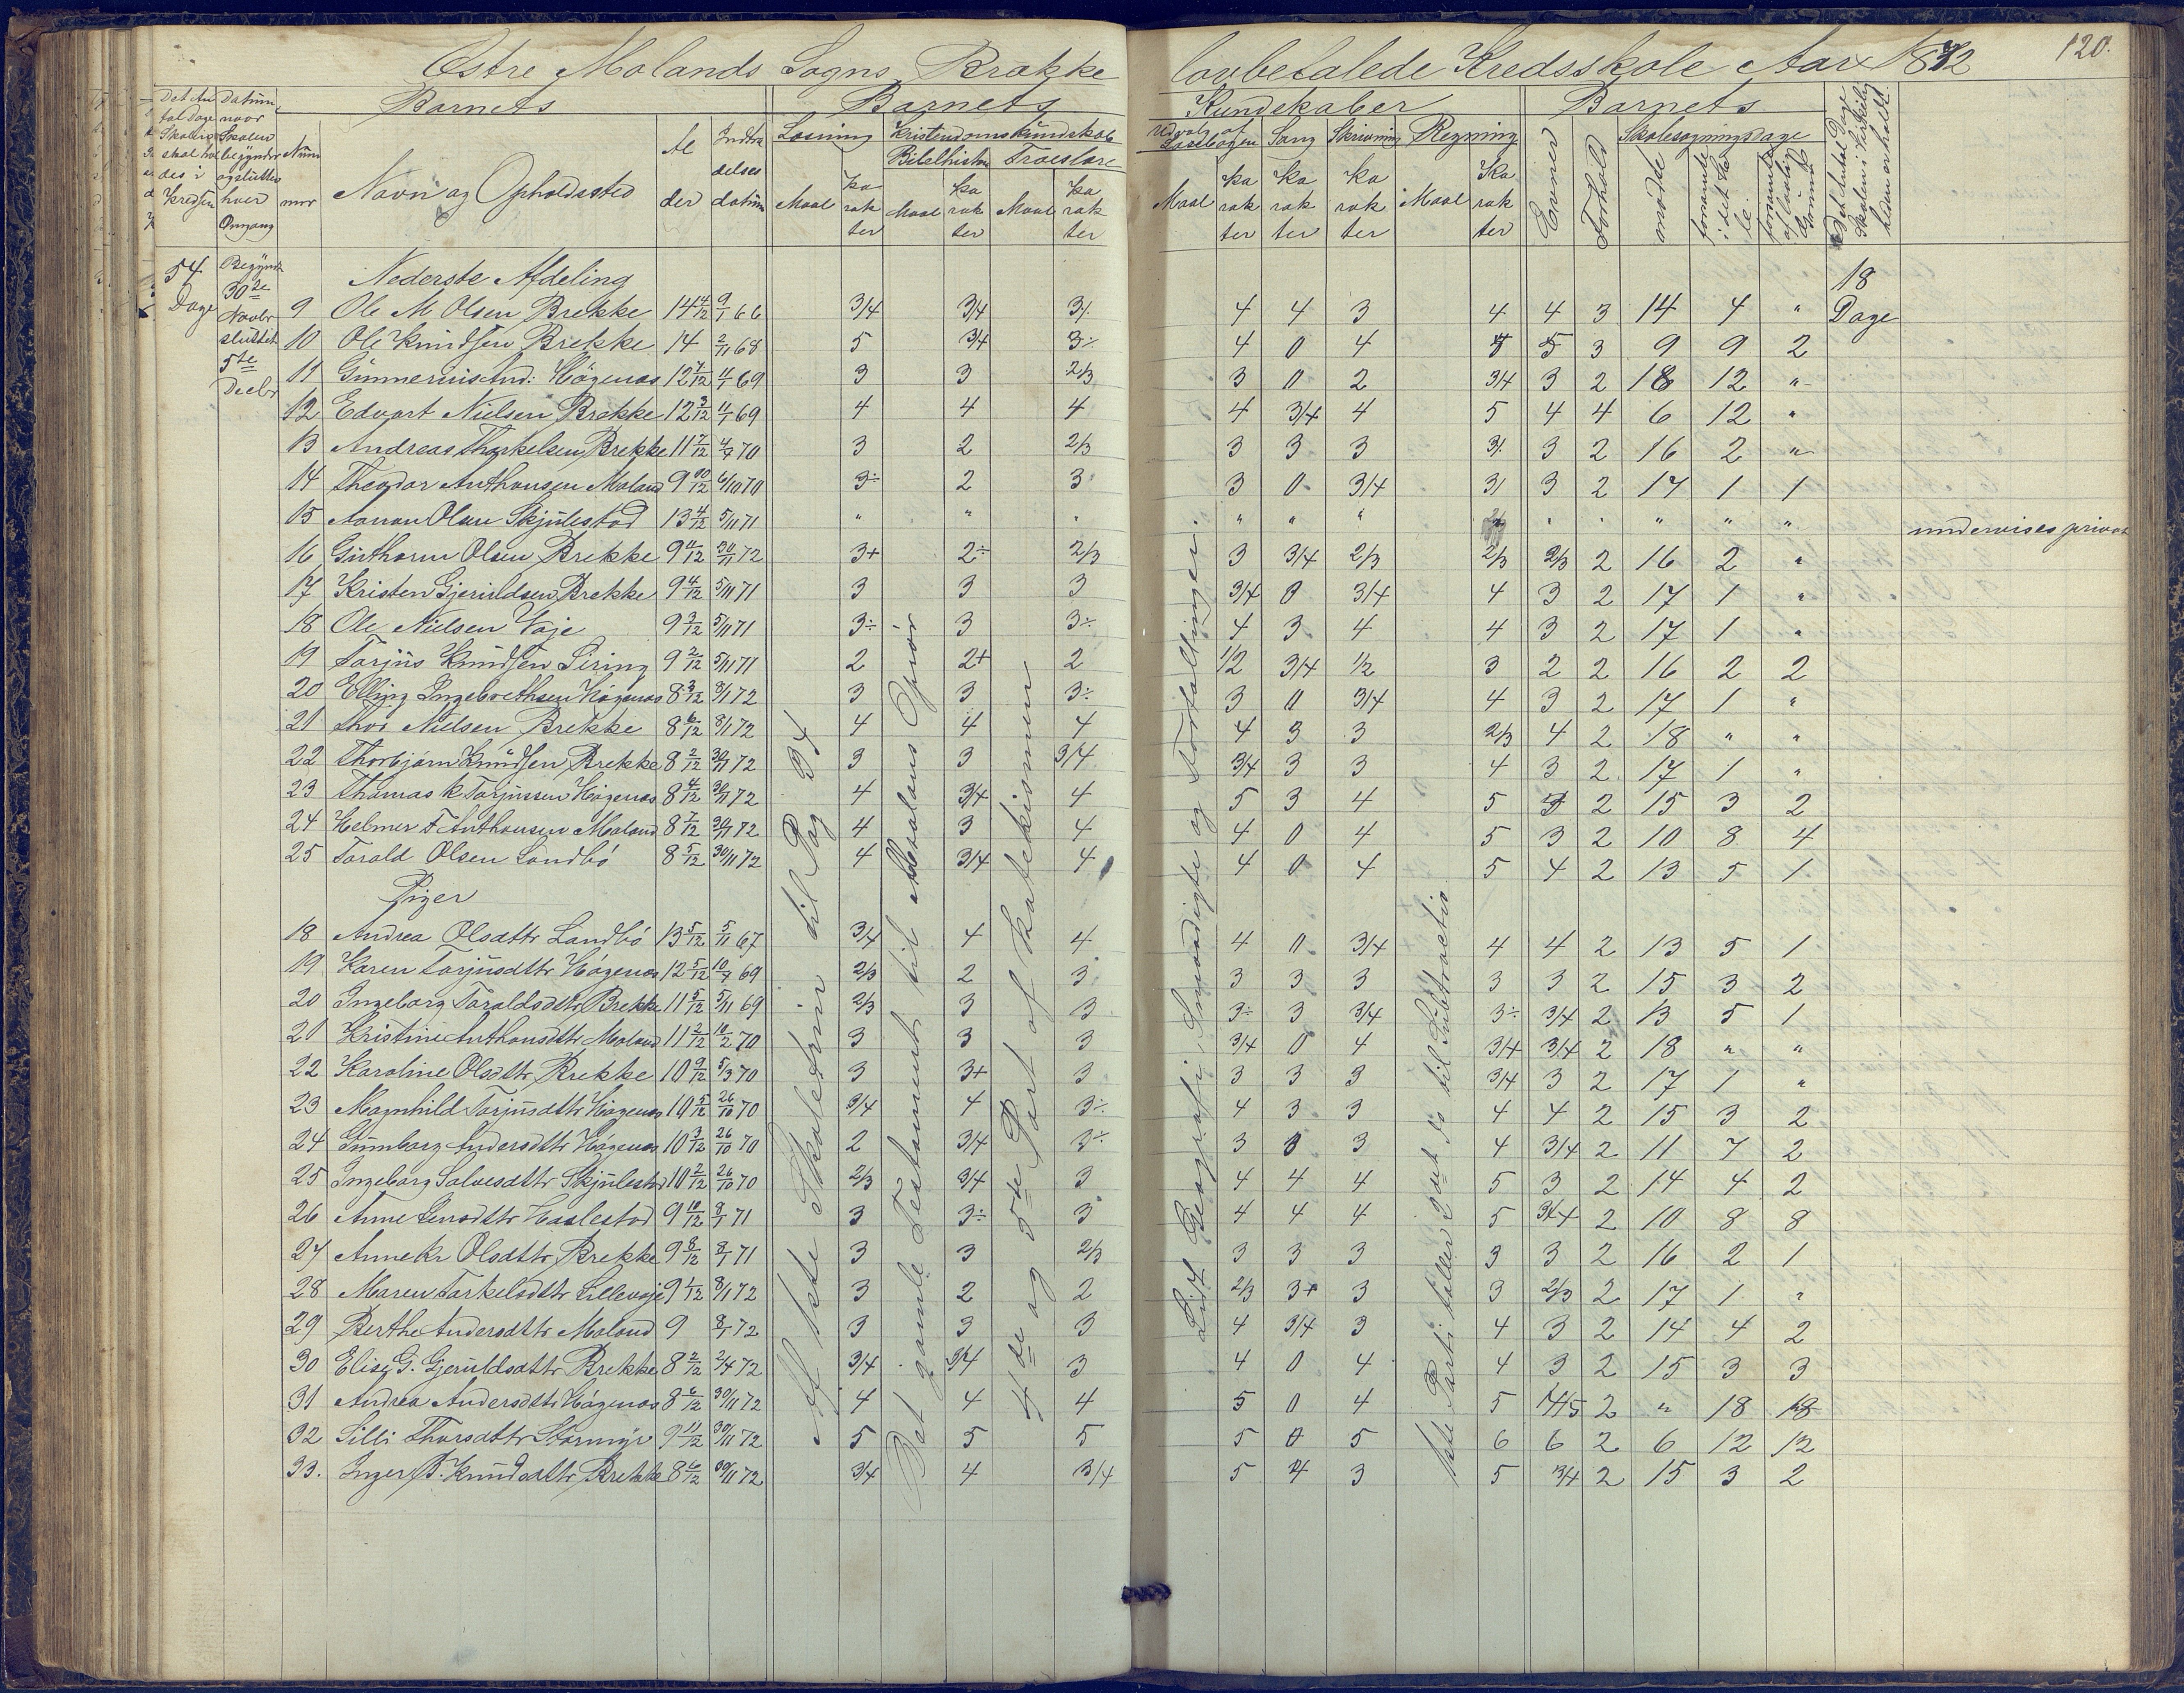 Østre Molands Sogns Brække lovbefalede Kredsskole Aar 1872
120.
Barnets Barnets Kundskaber Barnets
Det An tal Dage Skolen skal holdes i Kredsen
Datum naar Skolen begynder og slutter hver Omgang
Num mer
Navn og Opholdssted
Al der
Indtræ delses datum
Læsning Maal Ka rak ter
Kristendomskundskab
Bibelhistorie Maal Ka rak ter
Troeslære Maal Ka rak ter
Udvalg af Læsebogen Maal Ka rak ter
Sang Ka rak ter
Skrivning Ka rak ter
Regning Maal Ka rak ter
Evner
Forhold
Skolesøgningsdage
mødte
forsømte i det He le
forsømte af
Det Antal Dage Skolen i Virkelig heden er holdt
54 Dage
Begyndt 30te Novbr sluttet 5te Decbr
18 Dage
Nederste Afdeling
9 Ole M Olsen Brekke 14 4/12 9/1 66 3/4 3/4 3/. 4 4 3 4 4 3 14 4 "
10 Ole Knudsen Brekke 14 2/11 68 5 3/4 3÷ 4 0 4 5 5 3 9 9 2
11 Gunnerius And: Høgenæs 12 7/12 4/1 69 3 3 2/3 3 0 2 3/4 3 2 18 12 "
12 Edvart Nielsen Brekke 12 3/12 4/1 69 4 4 4 4 3/4 4 5 4 4 6 12 "
13 Andreas Thorkelsen Brekke 11 7/12 4/7 70 3 2 2/3 3 3 3 3/. 3 2 16 2 "
14 Theodor Anthonsen Moland 9 10/12 6/10 70 3÷ 2 3 3 0 3/4 3/ 3 2 17 1 1
15 Aanon Olsen Skjulestad 13 4/12 5/11 71 " " " " " " " " " " " undervises privat
16 Guthorm Olsen Brekke 9 4/12 30/11 72 3+ 2÷ 2/3 3 3/4 2/3 2/3 2/3 2 16 2 "
17 Kristen Gjeruldsen Brekke 9 4/12 5/11 71 3 3 3 3/4 0 3/4 4 3 2 17 1 "
18 Ole Nielsen Vaje 9 3/12 5/11 71 3÷ 3 3÷ 4 3 4 4 3 2 17 1 "
19 Torjus Knudsen Siring 9 2/12 5/11 71 2 2+ 2 1/2 3/4 1/2 3 2 2 16 2 2
20 Elling Ingebrethsen Høgenæs 8 3/12 8/1 72 3 3 3÷ 3 0 3/4 4 3 2 17 1 "
21 Thor Nielsen Brekke 8 6/12 8/1 72 4 4 4 4 3 3 2/3 4 2 18 " "
22 Thorbjørn Knudsen Brekke 8 2/12 30/11 72 3 3 3/4 3/4 3 3 4 3 2 17 1 "
23 Thomas K Torjussen Høgenæs 8 4/12 30/11 72 4 3/4 4 5 3 4 5 3 2 15 3 2
24 Helmer F Anthonsen Moland 8 7/12 30/11 72 4 3 4 4 0 4 5 3 2 10 8 4
25 Torald Olsen Landbø 8 5/12 30/11 72 4 3/4 4 4 0 4 5 4 2 13 5 1
Piger
18 Andrea Olsdttr Landbø 13 5/12 5/11 67 3/4 4 4 4 0 3/4 4 4 2 13 5 1
19 Karen Torjusdttr Høgenæs 12 5/12 10/7 69 2/3 2 3 3 3 3 3 3 2 15 3 2
20 Ingeborg Toraldsdttr Brekke 11 5/12 5/11 69 2/3 3 3 3÷ 3 3/4 3÷ 3/4 2 13 5 1
21 Kristine Anthonsdttr Moland 11 2/12 10/2 70 3 3 3 3/4 0 4 3/4 3/4 2 18 " "
22 Karoline Olsdttr Brekke 10 9/12 5/3 70 3 3+ 3 3 3 3 3/4 3 2 17 1 "
23 Magnhild Torjusdttr Høgenæs 10 5/12 26/10 70 3/4 4 3÷ 4 3 3 4 4 2 15 3 2
24 Gunborg Andersdttr Høgenæs 10 3/12 26/10 70 2 3/4 3÷ 3 0 3 4 3/4 2 11 7 2
25 Ingeborg Salvesdttr Skjulestad 10 2/12 26/10 70 2/3 3/4 3 4 4 4 5 3 2 14 4 2
26 Anne Jensdttr Haslestad 9 10/12 8/1 71 3 3÷ 3 4 4 4 5 3/4 2 10 8 8
27 Anne Kr Olsdttr Brekke 9 8/12 8/1 71 3 3 2/3 3 3 3 3 3 2 16 2 1
28 Maren Torkelsdttr Lillevaje 9 1/12 8/1 72 3 2 2 2/3 3+ 3 3 2/3 2 17 1 "
29 Berthe Andersdttr Moland 9 8/1 72 3 3 3 4 3/4 3 4 3 2 14 4 2
30 Elise G. Gjeruldsdttr Brekke 8 2/12 2/4 72 3/4 3/4 3 4 0 4 4 3 2 15 3 3
31 Andrea Andersdttr Høgenæs 8 6/12 30/11 72 4 4 4 5 0 4 5 4/5 2 " 18 18
32 Silli Thorsdttr Stormyr 9 11/12 30/11 72 5 5 5 5 0 5 6 6 2 6 12 12
33. Inger B. Knudsdttr Brekke 8 6/12 30/11 72 3/4 4 3/4 5 4 3 5 3/4 2 15 3 2
Af 1ste Skoletrin til Pag 34
Det gamle Testamente til Absalons Oprør
4de og 5te Part af Katekismen
Lidt Geografi, Smaadigte og Fortællinger.
1ste Parti tæller 2det do til Subtraction